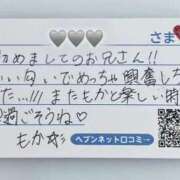 さま
初めましてのお兄さん!!
いい匂いでめっちゃ興奮した
た...!!! またもかと楽しい時
過ごそうね♡
もか☆彡
ヘブンネット口コミ→